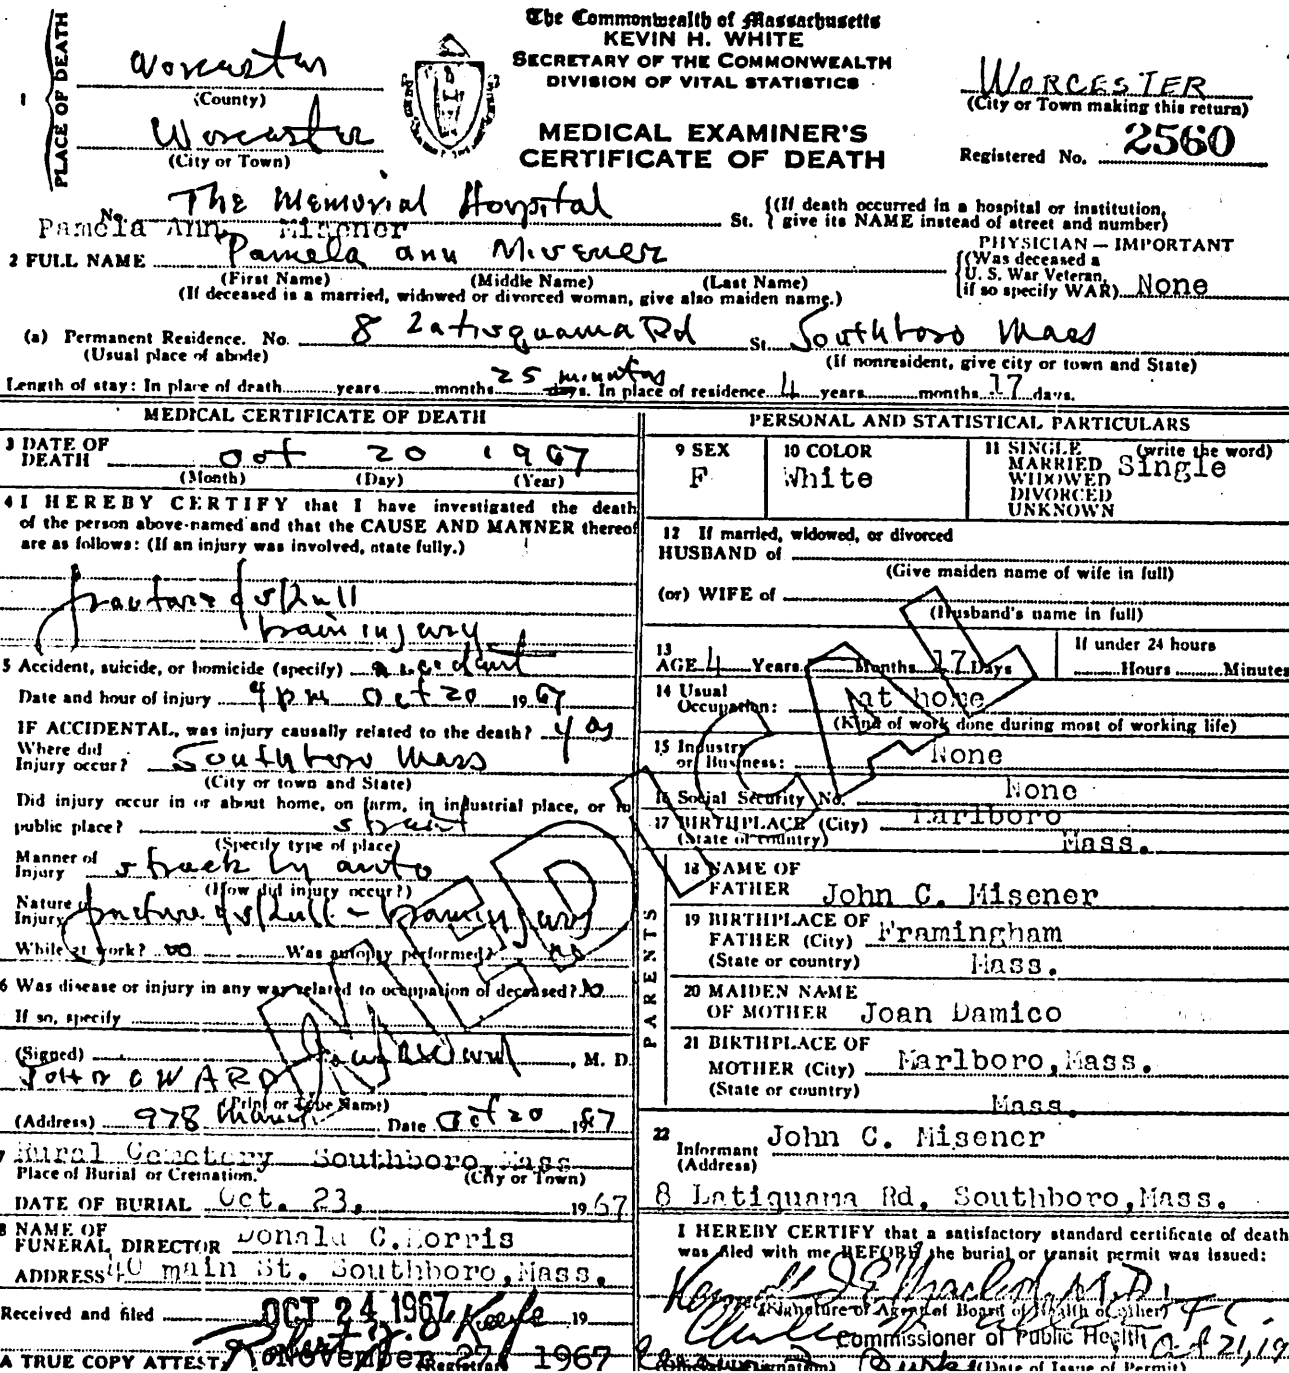 The Commonwealth of Massachusetts
KEVIN H. WHITE
SECRETARY OF THE COMMONWEALTH
DIVISION OF VITAL STATISTICS
MEDICAL EXAMINER'S
CERTIFICATE OF DEATH
1 PLACE OF DEATH
Worcester
(County)
Worcester
(City or Town)
WORCESTER
(City or Town making this return)
Registered No. 2560
No. The Memorial Hospital St. {(If death occurred in a hospital or institution, give its NAME instead of street and number)
Pamela Ann Misener
2 FULL NAME Pamela Ann Misener
(First Name) (Middle Name) (Last Name)
(If deceased is a married, widowed or divorced woman, give also maiden name.)
PHYSICIAN — IMPORTANT
(Was deceased a
U. S. War Veteran,
if so specify WAR) None
(a) Permanent Residence. No. 8 Latisquama Rd St. Southboro Mass
(Usual place of abode) (If nonresident, give city or town and State)
Length of stay: In place of death years months 25 minutes days. In place of residence 4 years months 17 days.
MEDICAL CERTIFICATE OF DEATH
3 DATE OF DEATH Oct 20 1967
(Month) (Day) (Year)
4 I HEREBY CERTIFY that I have investigated the death
of the person above-named and that the CAUSE AND MANNER thereof
are as follows: (If an injury was involved, state fully.)
fracture of skull
brain injury
5 Accident, suicide, or homicide (specify) accident
Date and hour of injury 4 pm Oct 20 1967
IF ACCIDENTAL, was injury causally related to the death? yes
Where did Injury occur? Southboro Mass
(City or town and State)
Did injury occur in or about home, on farm, in industrial place, or in
public place? street
(Specify type of place)
Manner of Injury struck by auto
(How did injury occur?)
Nature of Injury fracture of skull - brain injury
While at work? no Was autopsy performed? no
6 Was disease or injury in any way related to occupation of deceased? No
If so, specify
(Signed) M. D.
JOHN C WARD
(Print or Type Name)
(Address) 978 Main St. Date Oct 20 1967
7 Rural Cemetery Southboro, Mass
Place of Burial or Cremation. (City or Town)
DATE OF BURIAL Oct. 23, 1967
8 NAME OF FUNERAL DIRECTOR Donald C. Morris
ADDRESS 40 main St. Southboro, Mass.
Received and filed OCT 24 1967 19
Robert J. O'Keefe
(Registrar)
A TRUE COPY ATTEST: November 27, 1967
PERSONAL AND STATISTICAL PARTICULARS
9 SEX F
10 COLOR White
11 SINGLE (write the word)
MARRIED Single
WIDOWED
DIVORCED
UNKNOWN
12 If married, widowed, or divorced
HUSBAND of
(Give maiden name of wife in full)
(or) WIFE of
(Husband's name in full)
13 AGE 4 Years Months 17 Days
If under 24 hours
Hours Minutes
14 Usual Occupation: at home
(Kind of work done during most of working life)
15 Industry or Business: None
16 Social Security No. None
17 BIRTHPLACE (City) Marlboro
(State or country) Mass.
PARENTS
18 NAME OF FATHER John C. Misener
19 BIRTHPLACE OF FATHER (City) Framingham
(State or country) Mass.
20 MAIDEN NAME OF MOTHER Joan Damico
21 BIRTHPLACE OF MOTHER (City) Marlboro, Mass.
(State or country) Mass.
22 Informant John C. Misener
(Address)
8 Latiquama Rd. Southboro, Mass.
I HEREBY CERTIFY that a satisfactory standard certificate of death
was filed with me BEFORE the burial or transit permit was issued:
(Signature of Agent of Board of Health or other)
Commissioner of Public Health Oct 21, 19
(Official Designation) (Date of Issue of Permit)
MEDICAL